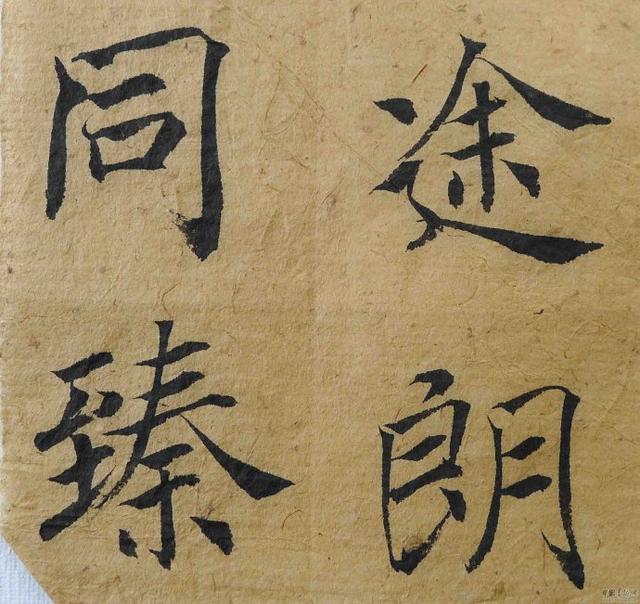 途朗
同臻